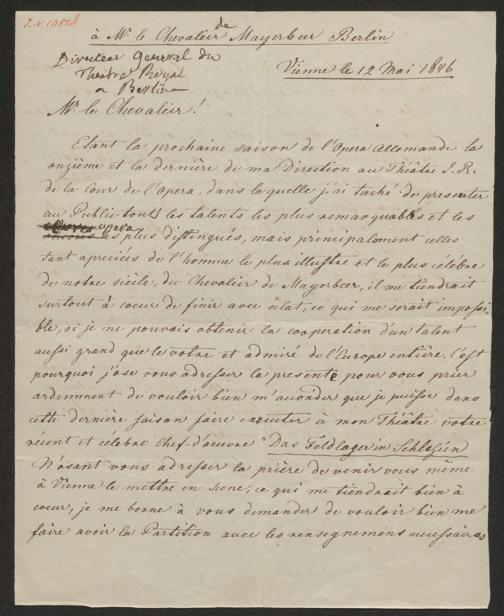 J. N. 10528
à Mr. le Chevalier de Mayerbeer Berlin
Directeur General du
Theatre Royal
a Berlin
Vienne le 12 Mai 1846
Mr. le Chevalier!
Etant la prochaine saison de l'Opera allemande la
onzième et la dernière de ma Direction au Théâtre I. R.
de la cour de l'opera, dans laquelle j'ai taché de presenter
au Public touts les talents les plus remarquables et les
opera
les plus distingués, mais principalement celles
tant apreciées de l'homme le plus illustre et le plus célèbre
de notre siècle, du Chevalier de Mayerbeer, il me tiendrait
surtout à coeur de finir avec éclat, ce qui me serait impossi-
ble, si je ne pouvais obtenir la cooperation d'un talent
aussi grand que le votre et admiré de l'Europe entière. C'est
pourquoi j'ose vous adresser la presente pour vous prier
ardemment de vouloir bien m'accorder que je puisse dans
cette dernière saison faire executer à mon Théâtre votre
récent et célèbre Chef-d'oeuvre "Das Feldlager in Schlesien
N'osant vous adresser la prière de venir vous même
à Vienne le mettre en scene, ce qui me tiendrait bien à
coeur, je me borne à vous demander de vouloir bien me
faire avoir la Partition avec les renseignemens necessaires